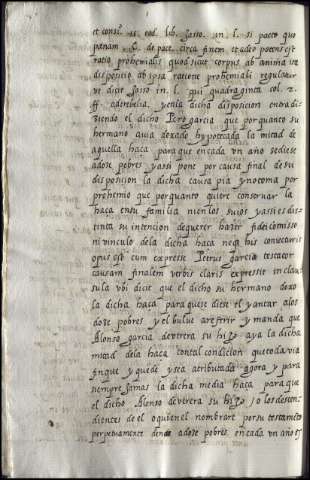 et consi. 15. eod. lib. Jasso. in. l. si pacto quo
pœnam . ff. de pact. circa finem et adeo potens est
ratio prohemialis quod sicut corpus ab anima ita
dispositio ab ipsa ratione prohemiali regulatur
ut dicit Jasso in. l. qui quadraginta col. 2.
ff. ad en la dicha disposicion
diziendo el dicho Pero garcia que por quanto su
hermano auia dexado hypotecada la mitad de
aquella haça para que en cada vn año se diese
a doze pobres y assi pone por causa final de su
disposicion la dicha causa pia y no toma por
prohemio que por quanto quiere conseruar la
haça en su familia ni en los suios y assi es dis
tinta su intencion de querer hazer fideicomisso
ni vinculo dela dicha haça neq. his coniecturis
opus est cum expresse Petrus garcia testator
causam finalem verbis claris expresse in clau
sula vbi dicit que el dicho su hermano dexo
la dicha haça para que se diese el yantar a los
doze pobres y el bulue a referir y manda que
Alonso garcia de vtrera su hijo aya la dicha
mitad dela haça con tal condicion que toda via
finque y quede y sea atributada agora y para
siempre jamas la dicha media haça para que
el dicho Alonso de vtrera su hijo / o los descen
dientes de el o quien el nombrare por su testamẽto
perpetuamente denle a doze pobres en cada vn año es